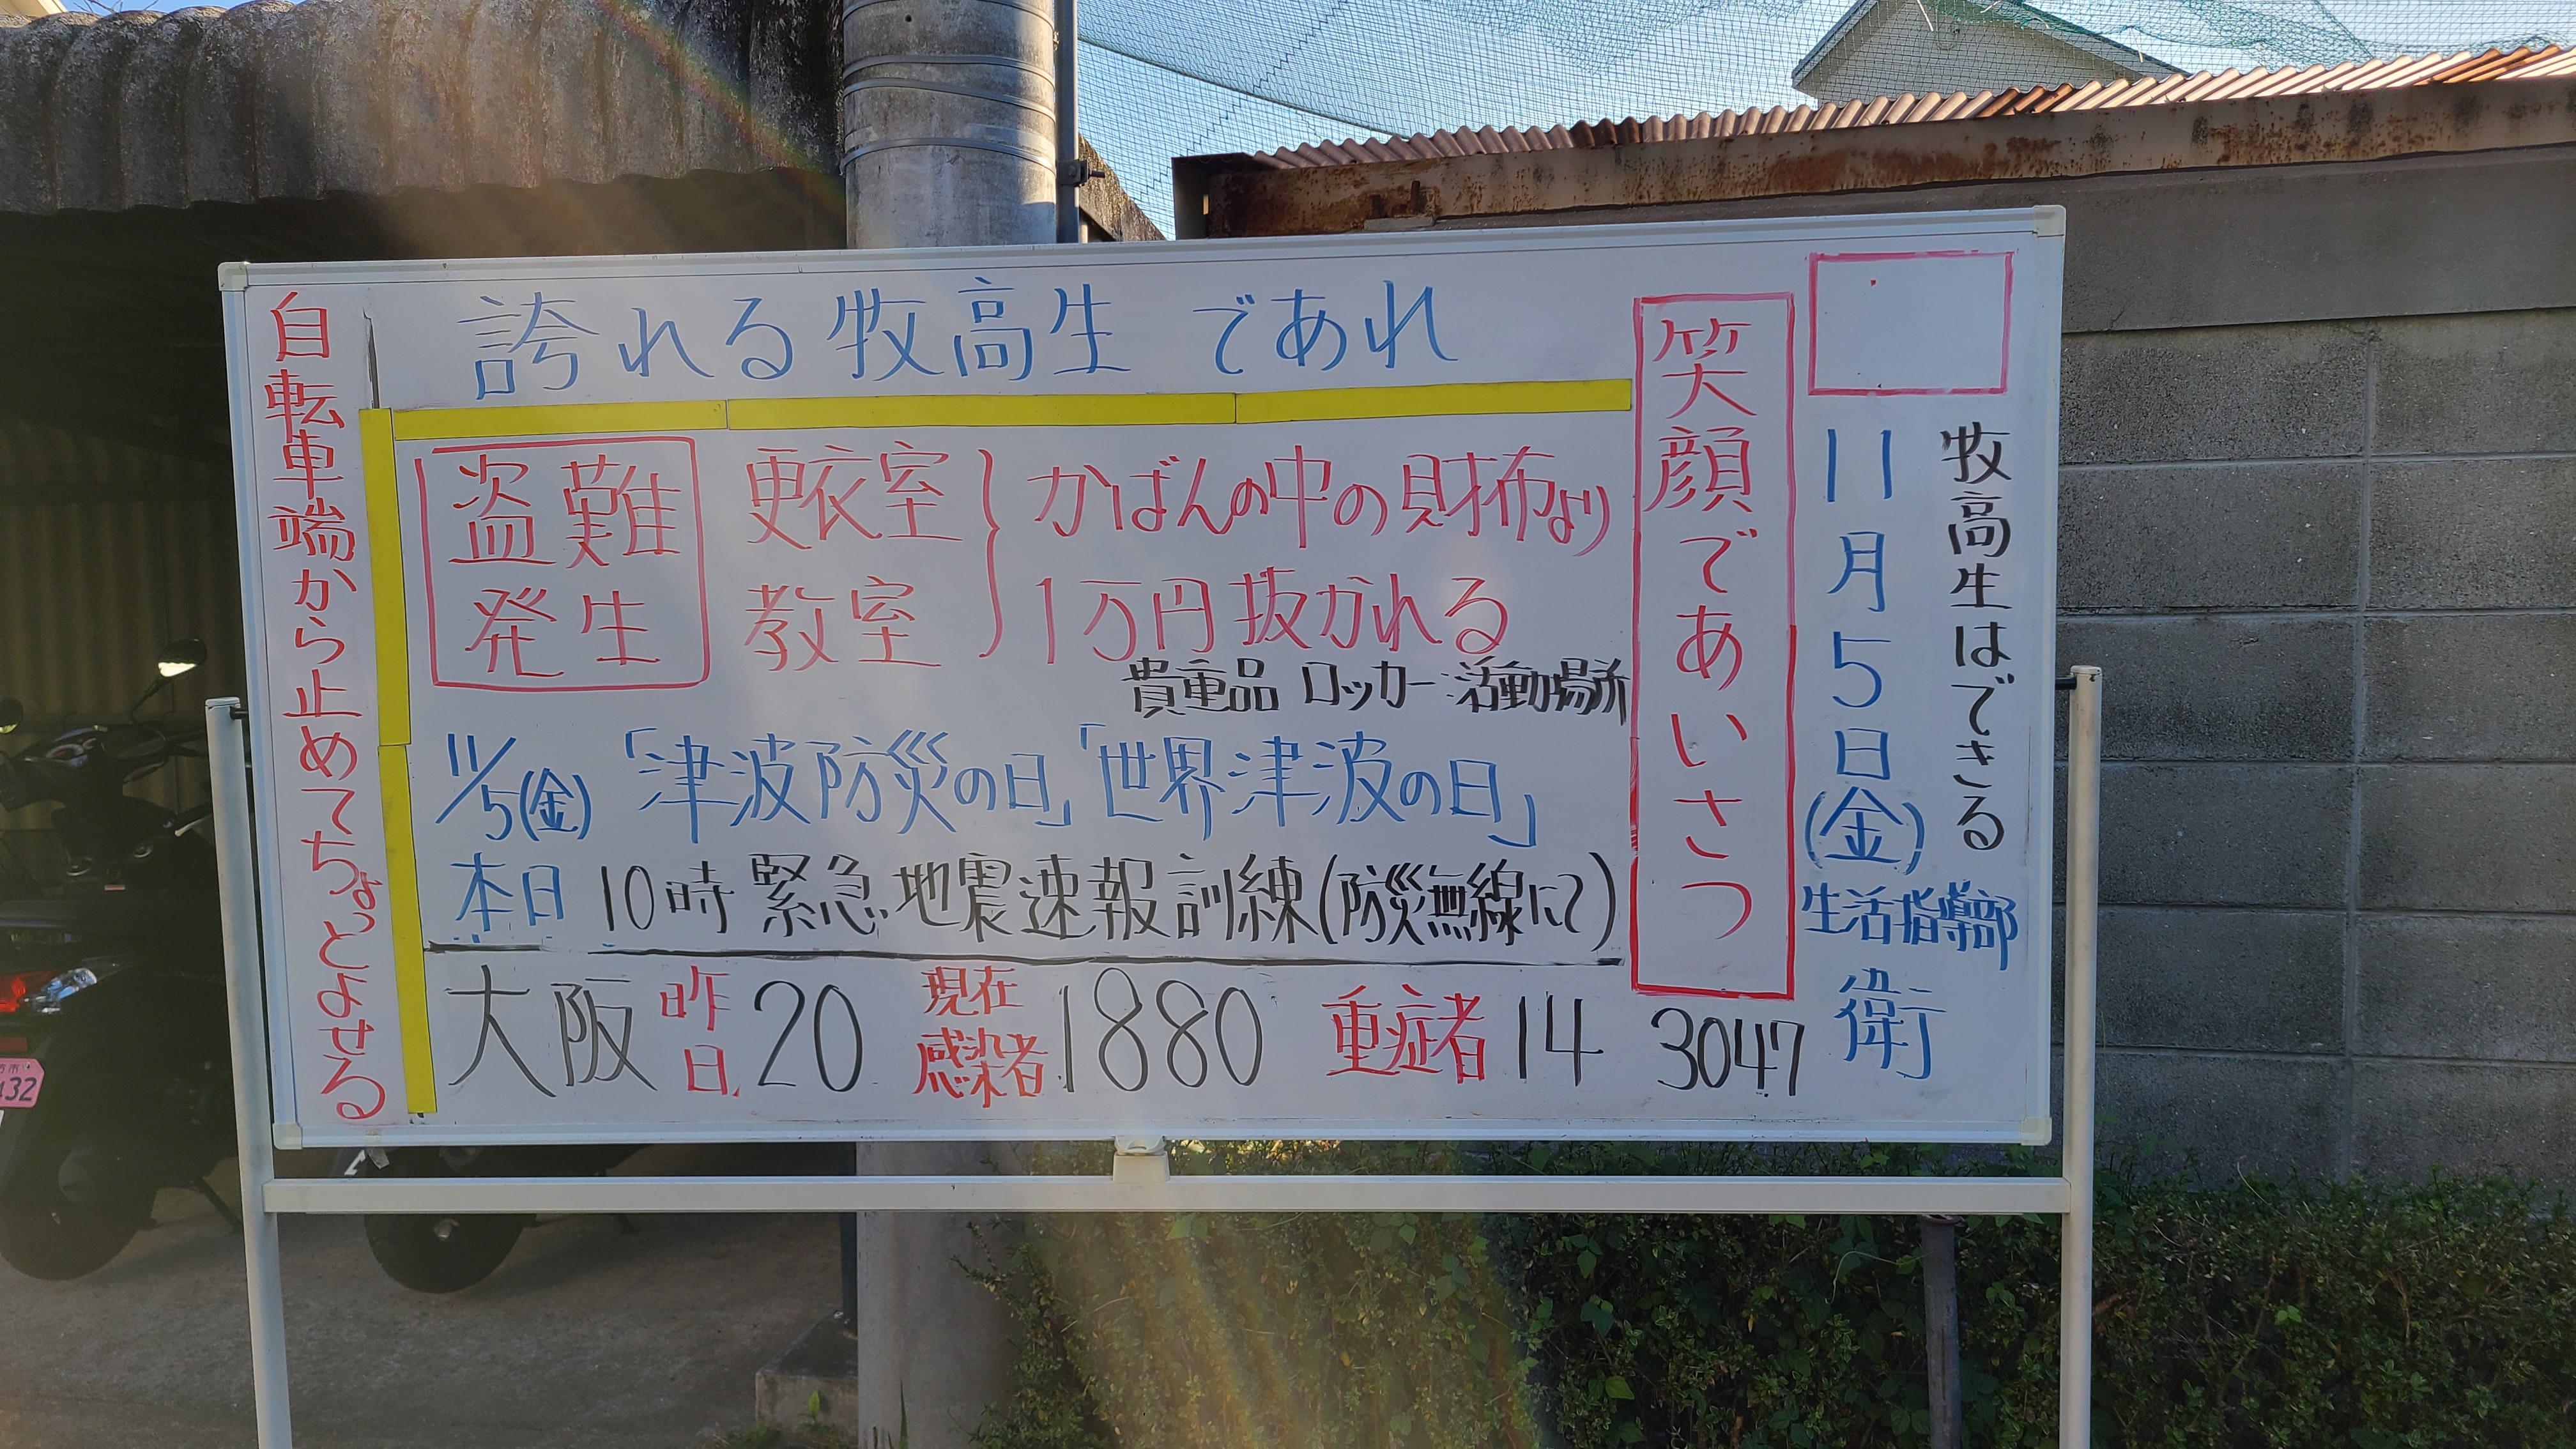 牧高生はできる
11月5日(金)
生活指導部
衛
笑顔であいさつ
誇れる牧高生であれ
盗難
発生
更衣室
教室
かばんの中の財布より
1万円抜かれる
貴重品 ロッカー 活動場所
11/5(金)「津波防災の日」「世界津波の日」
本日 10時 緊急地震速報訓練(防災無線にて)
大阪 昨日 20 現在感染者 1880 重症者 14 3047
自転車端から止めてちょっとよせる
32